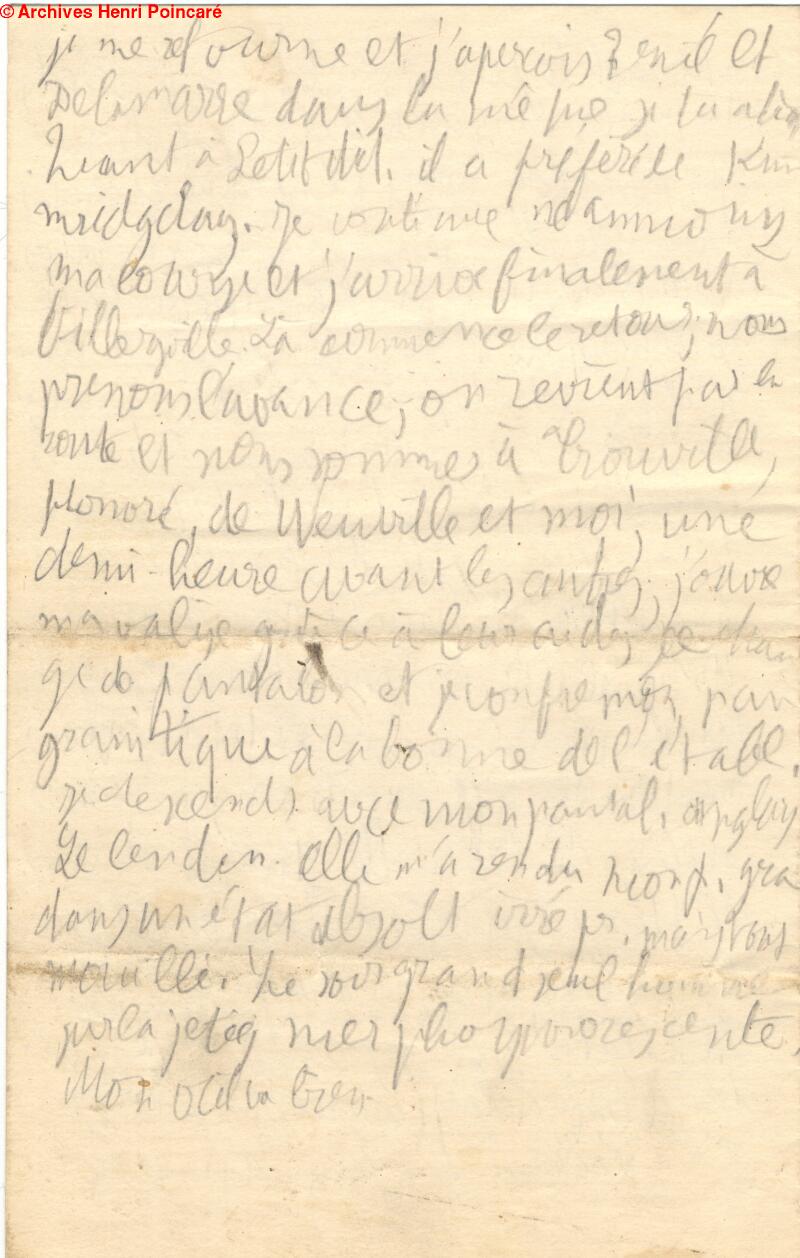 © Archives Henri Poincaré
je me retourne et j'aperçois et
Delamarre dans la même situation
Quant à Petitdid. il a préféré le
. Je continue néanmoins
ma course et j'arrive finalement à
Villerville. Là commence le retour; nous
prenons l'avance; on revient par la
route et nous sommes à Trouville,
Honoré, de Neuville et moi, une
demi-heure avant les autres, j'ouvre
ma valise grâce à leur aide, je chan
ge de pantalon et je confie mon pan
granitique à la bonne de l'établ.
je descends avec mon pantal. anglais
Le lendem. elle m'a rendu mon p. gra
dans un état absolt irrépr. mais tout
mouillé. Le soir grand
sur la jetée, mer phosphorescente,
Mon œil va bien